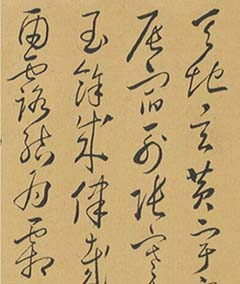 天地玄黃宇
辰宿列張寒
閏餘成律歲
雨露結為霜